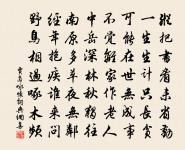 縱把書看未省勤
一生生計只長貧
可能在世無成事
不覺離家作老人
中岳深林秋獨往
南原多草夜無鄰
經年抱疾誰來問
野鳥相過啄木頻
賈島詠懷